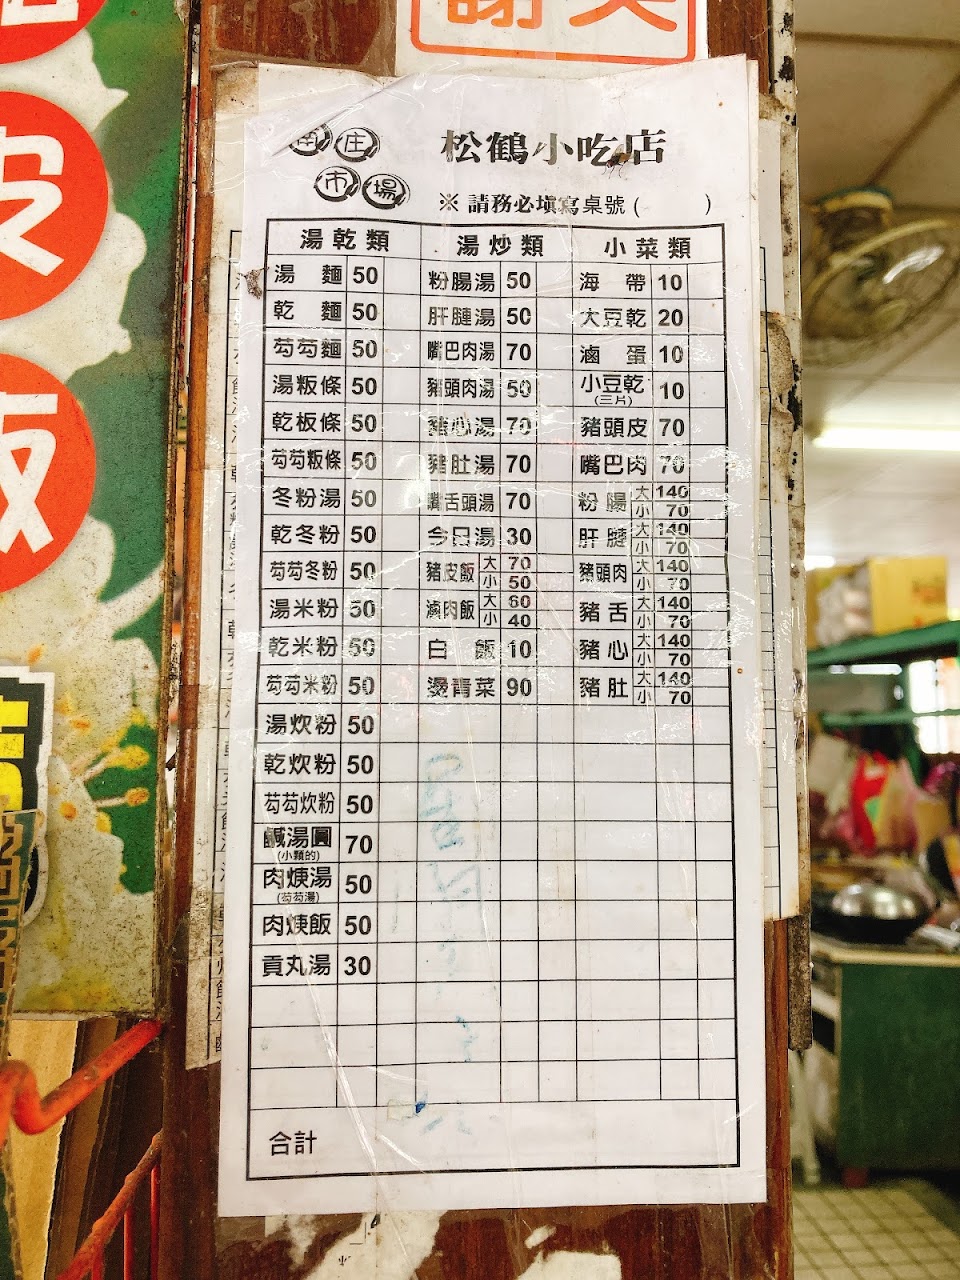 謝
南庄
市場
松鶴小吃店
※ 請務必填寫桌號 ( )
湯乾類 湯炒類 小菜類
湯麵 50 粉腸湯 50 海帶 10
乾麵 50 肝腱湯 50 大豆乾 20
芶芶麵 50 嘴巴肉湯 70 滷蛋 10
湯粄條 50 豬頭肉湯 50 小豆乾 (三片) 10
乾板條 50 豬心湯 70 豬頭皮 70
芶芶粄條 50 豬肚湯 70 嘴巴肉 70
冬粉湯 50 嘴舌頭湯 70 粉腸 大 140 小 70
乾冬粉 50 今日湯 30 肝腱 大 140 小 70
芶芶冬粉 50 豬皮飯 大 70 小 50 豬頭肉 大 140 小 70
湯米粉 50 滷肉飯 大 60 小 40 豬舌 大 140 小 70
乾米粉 50 白飯 10 豬心 大 140 小 70
芶芶米粉 50 燙青菜 90 豬肚 大 140 小 70
湯炊粉 50
乾炊粉 50
芶芶炊粉 50
鹹湯圓 (小顆的) 70
肉焿湯 (芶芶湯) 50
肉焿飯 50
貢丸湯 30
合計
皮
飯